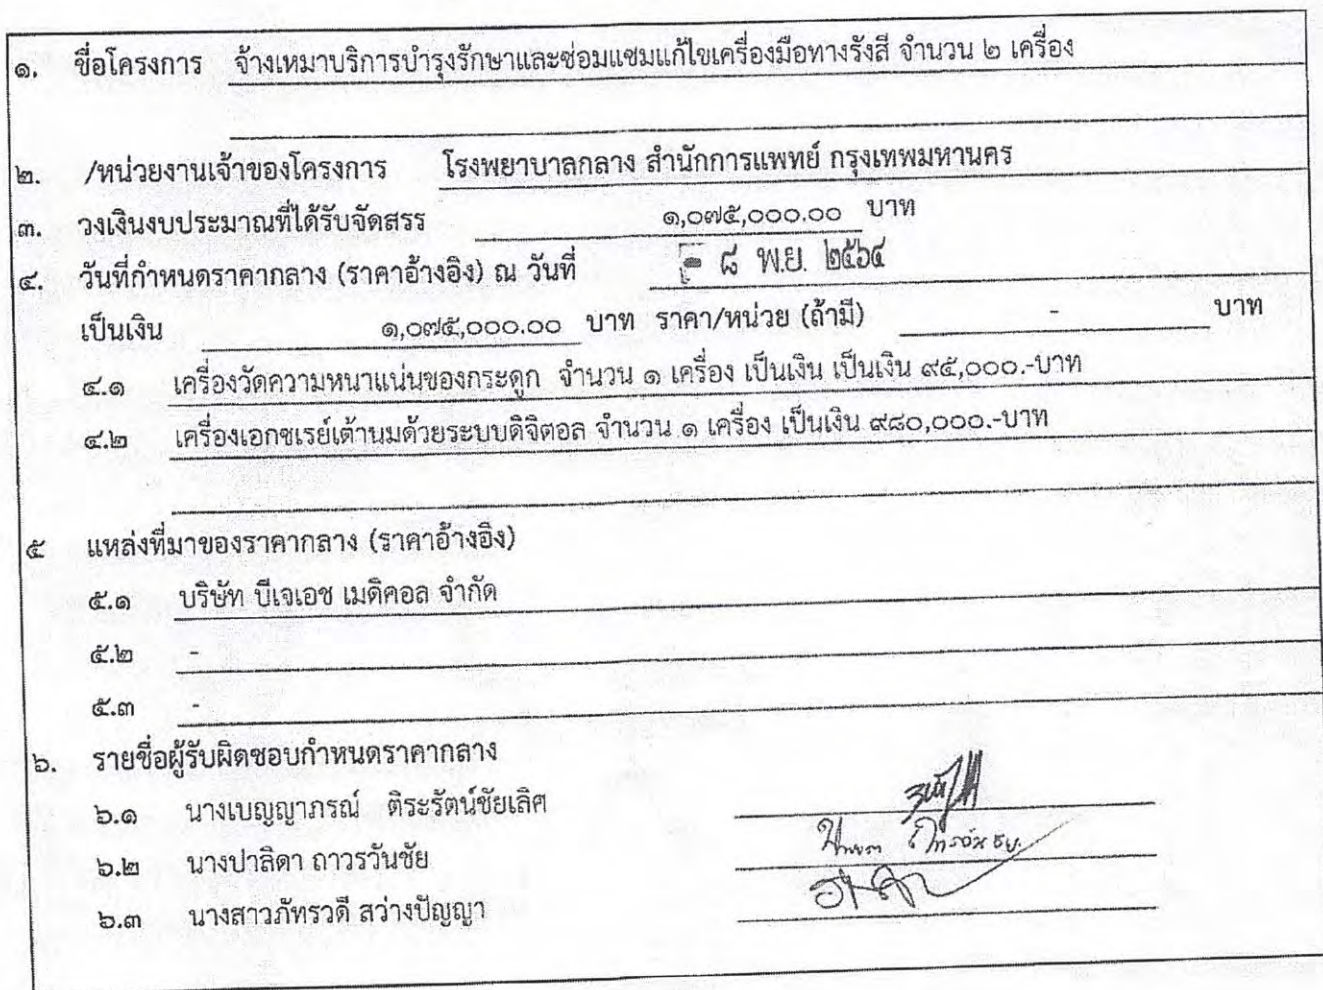 ๑. ชื่อโครงการ จ้างเหมาบริการบำรุงรักษาและซ่อมแซมแก้ไขเครื่องมือทางรังสี จำนวน ๒ เครื่อง
๒. /หน่วยงานเจ้าของโครงการ โรงพยาบาลกลาง สำนักการแพทย์ กรุงเทพมหานคร
๓. วงเงินงบประมาณที่ได้รับจัดสรร ๑,๐๗๕,๐๐๐.๐๐ บาท
๔. วันที่กำหนดราคากลาง (ราคาอ้างอิง) ณ วันที่ - ๘ พ.ย. ๒๕๖๔
เป็นเงิน ๑,๐๗๕,๐๐๐.๐๐ บาท ราคา/หน่วย (ถ้ามี) - บาท
๔.๑ เครื่องวัดความหนาแน่นของกระดูก จำนวน ๑ เครื่อง เป็นเงิน เป็นเงิน ๙๕,๐๐๐.-บาท
๔.๒ เครื่องเอกซเรย์เต้านมด้วยระบบดิจิตอล จำนวน ๑ เครื่อง เป็นเงิน ๙๘๐,๐๐๐.-บาท
๕ แหล่งที่มาของราคากลาง (ราคาอ้างอิง)
๕.๑ บริษัท บีเจเอช เมดิคอล จำกัด
๕.๒ -
๕.๓ -
๖. รายชื่อผู้รับผิดชอบกำหนดราคากลาง
๖.๑ นางเบญญาภรณ์ ติระรัตน์ชัยเลิศ
๖.๒ นางปาลิดา ถาวรวันชัย
๖.๓ นางสาวภัทรวดี สว่างปัญญา